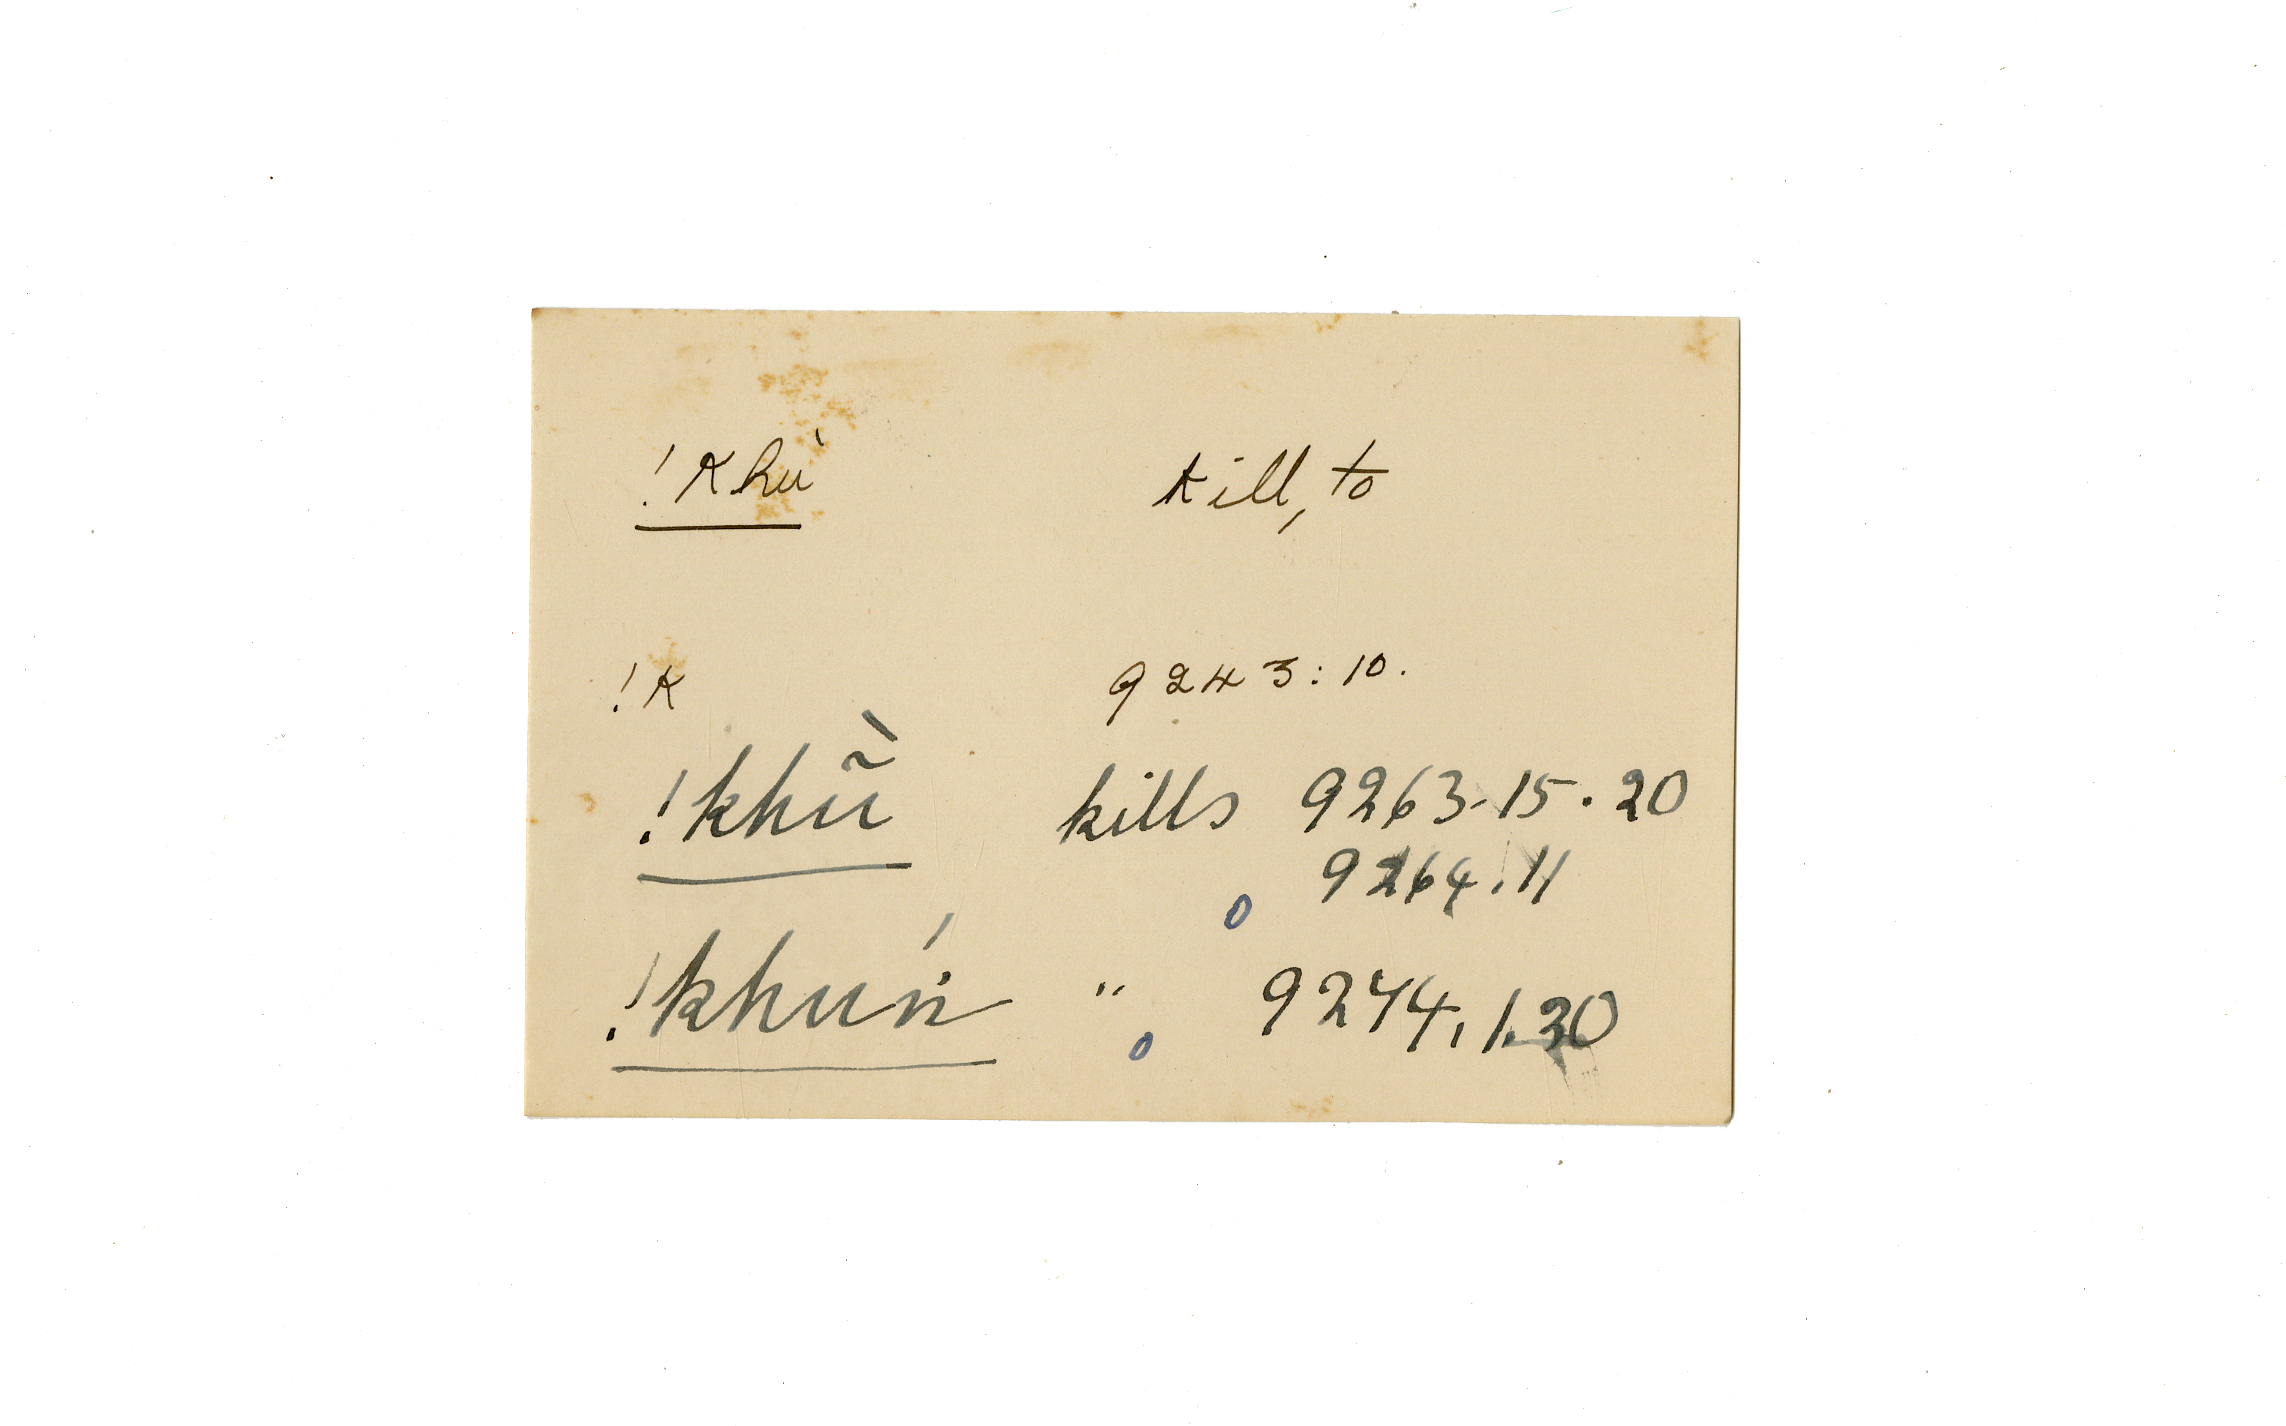 !khù kill, to
!k 9243:10.
!khũ̀ kills 9263-15.20
9264.11
o
!khuńː " 9274,1.30
o